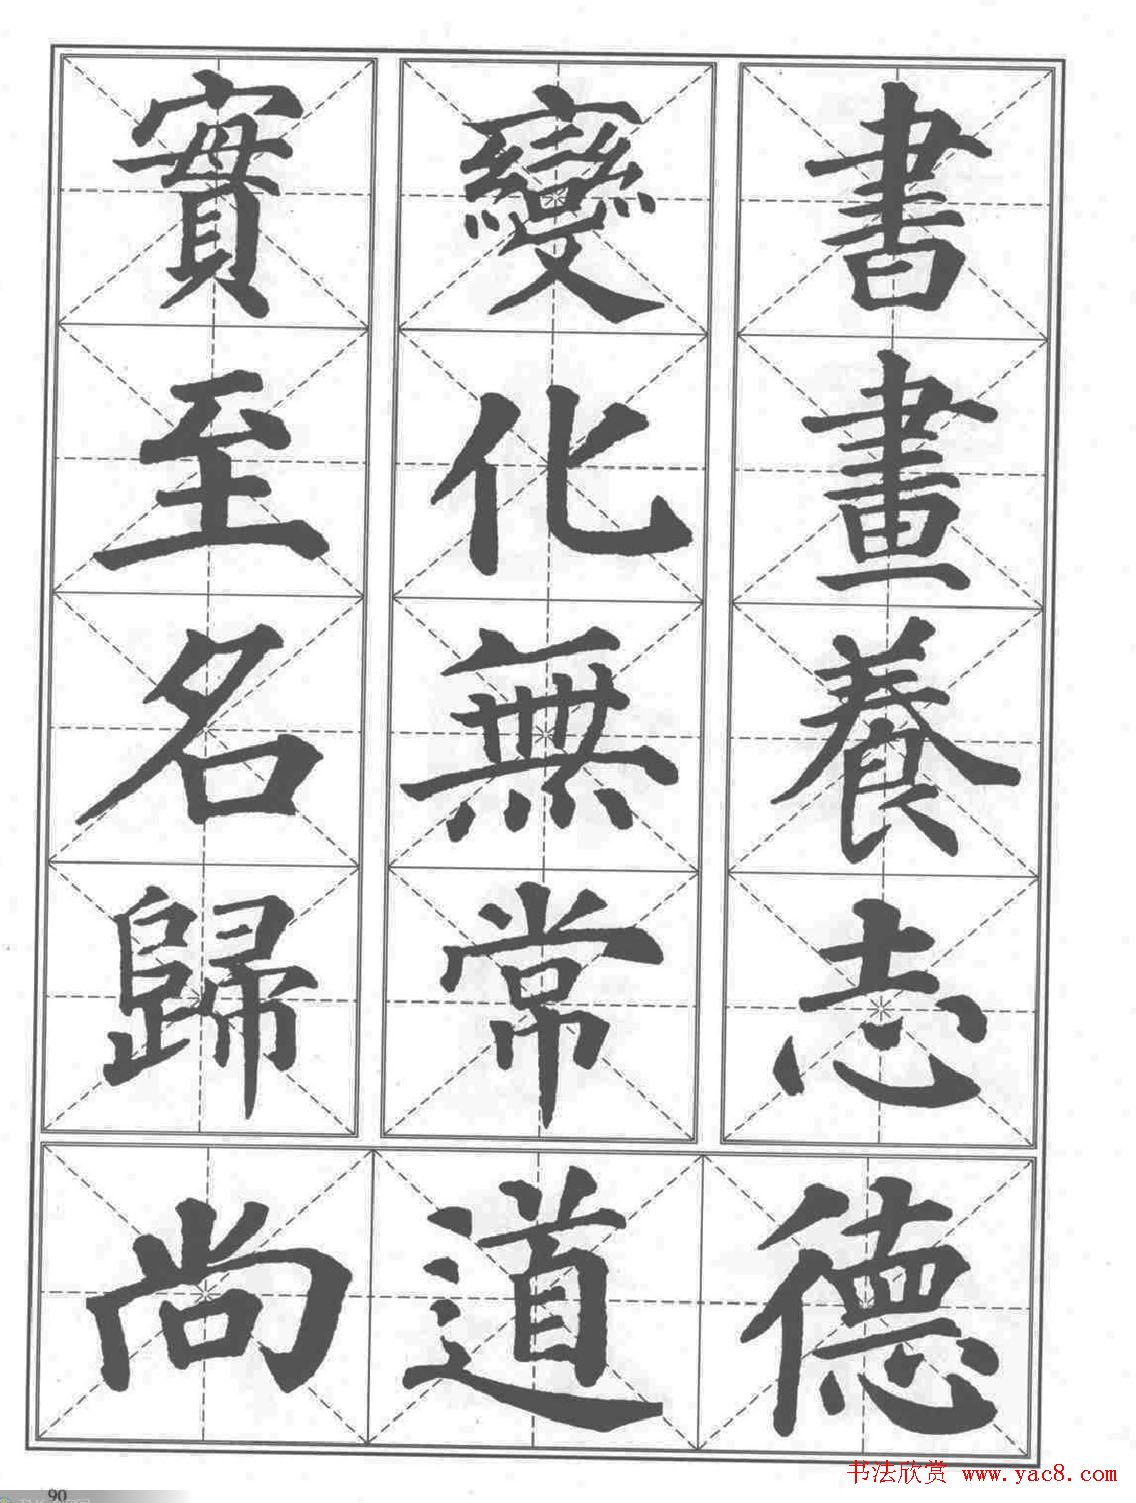 書畫養志
變化無常
實至名歸
德道尚
书法欣赏 www.yac8.com
90